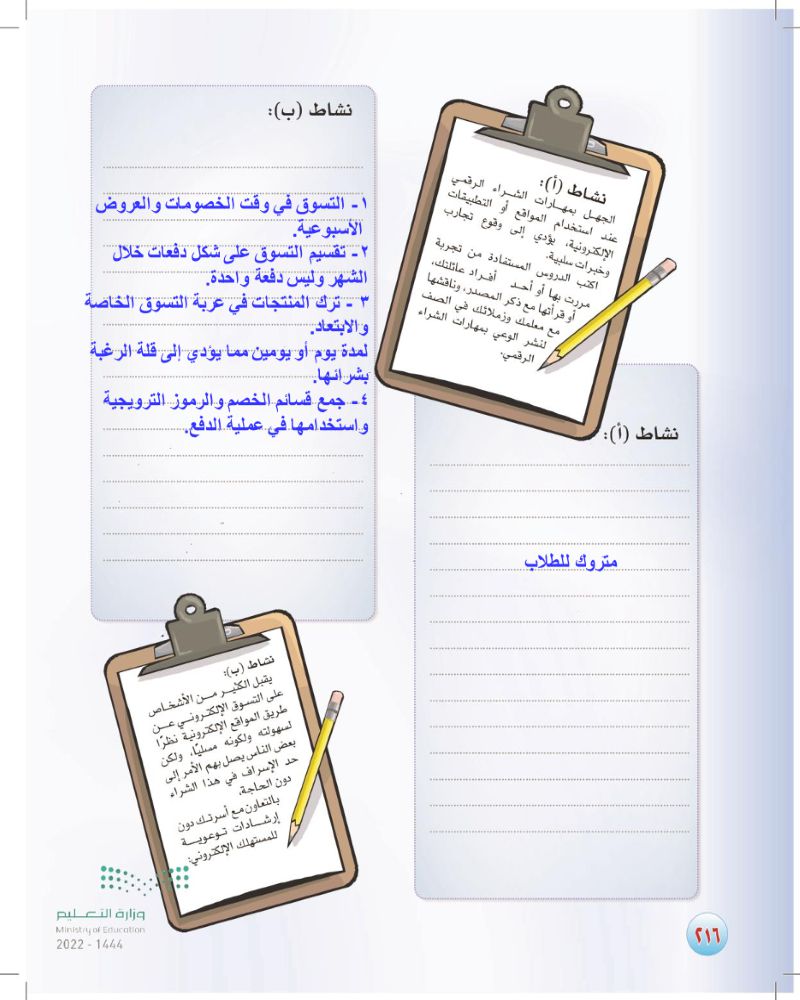 نشاط (أ):
الجهل بمهارات الشراء الرقمي
عند استخدام المواقع أو التطبيقات
الإلكترونية، يؤدي إلى وقوع تجارب
وخبرات سلبية.
اكتب الدروس المستفادة من تجربة
مررت بها أو أحد أفراد عائلتك،
أو قرأتها مع ذكر المصدر، وناقشها
مع معلمك وزملائك في الصف
لنشر الوعي بمهارات الشراء
الرقمي.
نشاط (أ):
متروك للطلاب
نشاط (ب):
١- التسوق في وقت الخصومات والعروض
الأسبوعية.
٢- تقسيم التسوق على شكل دفعات خلال
الشهر وليس دفعة واحدة.
٣ - ترك المنتجات في عربة التسوق الخاصة
والابتعاد.
لمدة يوم أو يومين مما يؤدي إلى قلة الرغبة
بشرائها.
٤- جمع قسائم الخصم والرموز الترويجية
واستخدامها في عملية الدفع.
نشاط (ب):
يقبل الكثير من الأشخاص
على التسوق الإلكتروني عن
طريق المواقع الإلكترونية نظرًا
لسهولته ولكونه مسليًا، ولكن
بعض الناس يصل بهم الأمر إلى
حد الإسراف في هذا الشراء
دون الحاجة.
بالتعاون مع أسرتك دون
إرشادات توعوية
للمستهلك الإلكتروني:
وزارة التعـليم
Ministry of Education
2022 - 1444
٢١٦